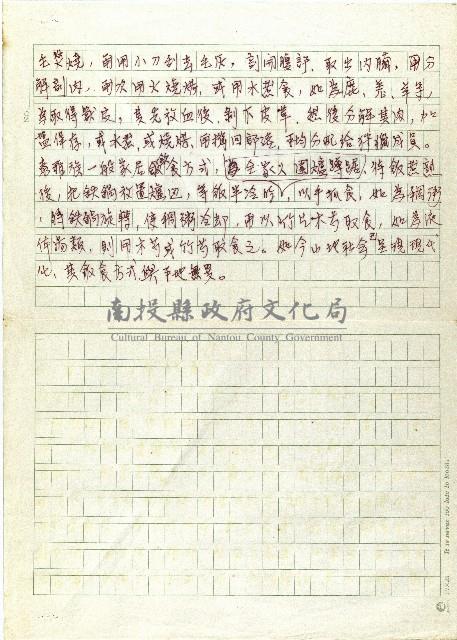 毛焚燒，再用小刀刮去毛灰，剖開腹部，取出內臟，再分
解割肉，再次用火燒烤，或用水煮食，如為鹿、羌、羊等，
為取得獸皮，其先放血後，剝下皮革，然後分解其肉，加
鹽保存，或水煮，或燒烤，再攜回部落，平均分配給狩獵成員。
泰雅族一般家居飲食方式，每全家人圍爐蹲踞，待飯煮熟
後，把鐵鍋放置爐邊，等飯半冷時，以手抓食，如為稠粥
，將鐵鍋旋轉，使稠粥冷卻，再以竹片木芍取食，如為液
体湯類，則用木芍或竹芍取食之。如今山地社會已呈現現代
化，其飲食方式與平地無異。
南投縣政府文化局
Cultural Bureau of Nantou County Government
It is never too late to learn.